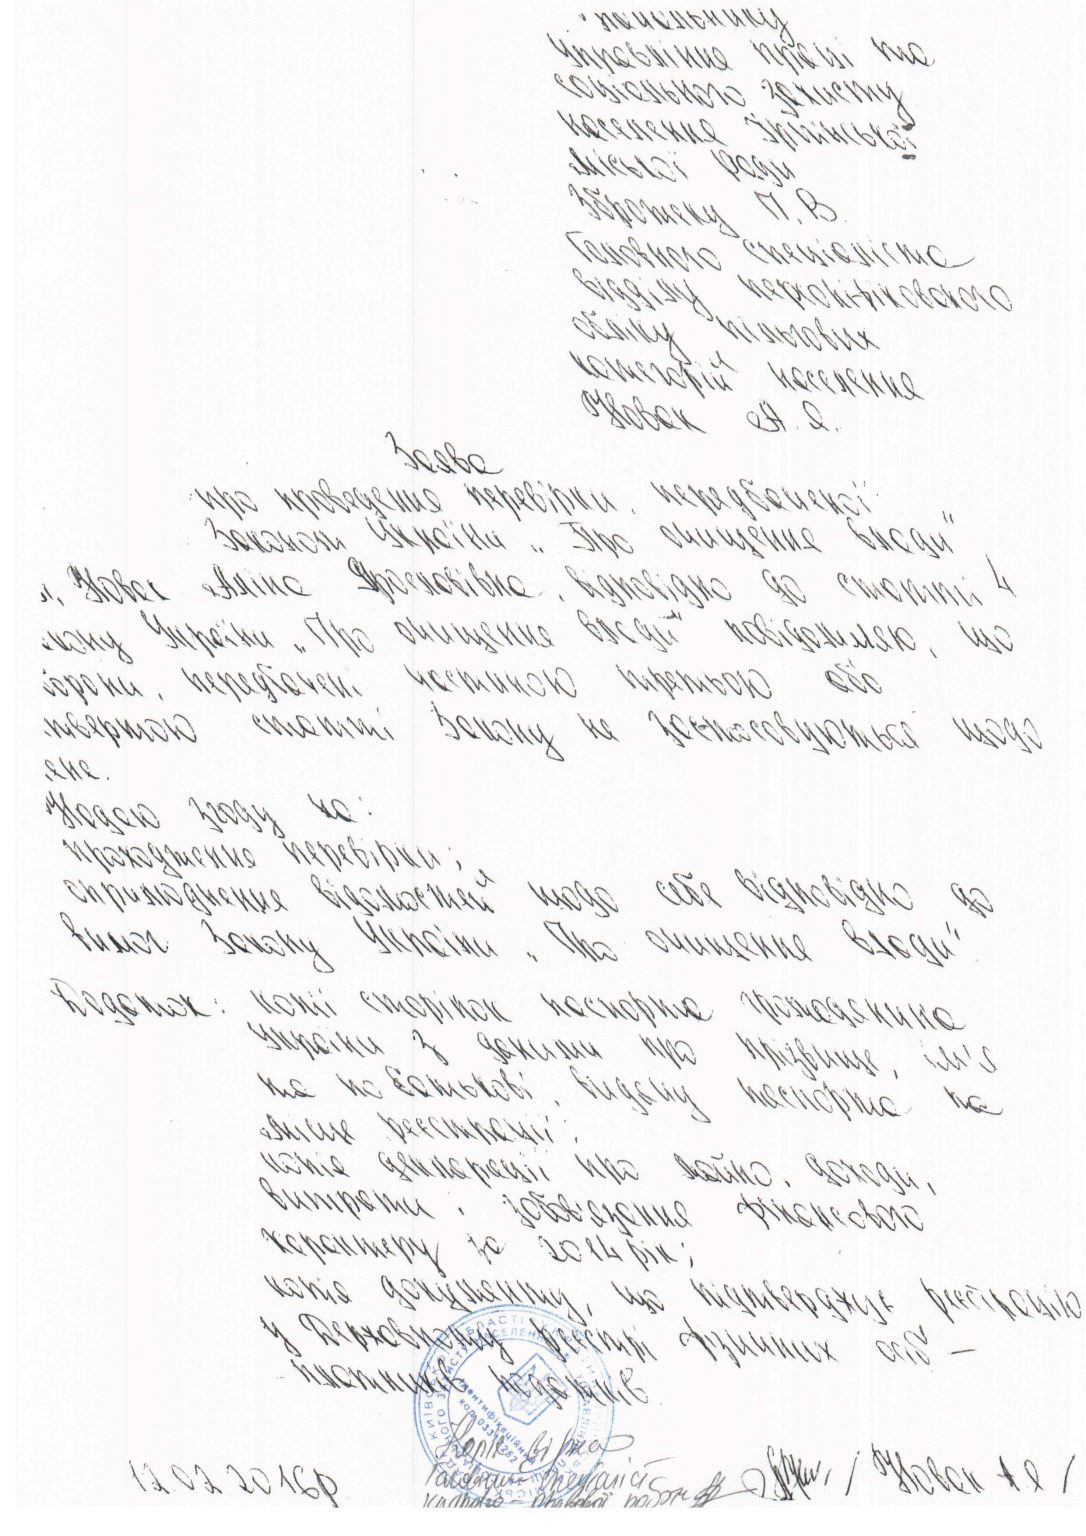 Начальнику
Управління праці та
соціального захисту
населення Ірпінської
міської ради
П. В.
Головного спеціаліста
відділу персоніфікованого
обліку пільгових
категорій населення
Новак А. Я.
Заява
про проведення перевірки, передбаченої
Законом України „Про очищення влади"
Я, Новак Аліна Ярославівна, відповідно до статті 4
акону України „Про очищення влади" повідомляю, що
борони, передбачені частиною третьою або
етвертою статті Закону не застосовуються щодо
ене.
Надаю згоду на:
проходження перевірки;
оприлюднення відомостей щодо себе відповідно до
вимог Закону України „Про очищення влади".
Додаток: копії сторінок паспорта громадянина
України з даними про прізвище, ім'я
та по батькові, видачу паспорта та
місце реєстрації;
копія декларації про майно, доходи,
витрати і зобов'язання фінансового
характеру за 2014 рік;
копія документу, що підтверджує реєстрацію
у Державному реєстрі фізичних осіб –
платників податків
ідентифікаційний
код
Копія вірна
Головний спеціаліст
кадрово-правової роботи
12.02.2016р / Новак А Я /